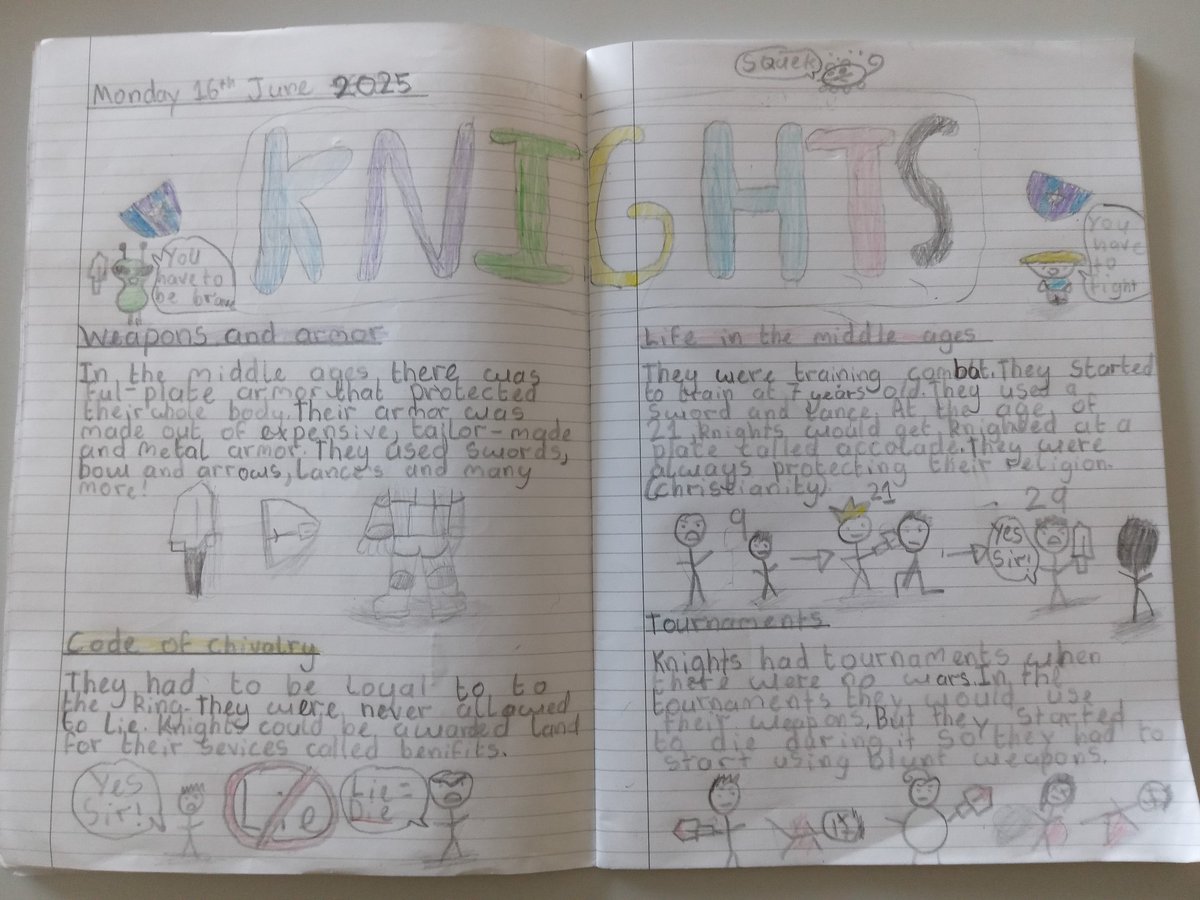 Monday 16th June 2025
KNIGHTS
You
have to
be brave
Weapons and armor
In the middle ages there was
ful-plate armor that protected
their whole body. Their armor was
made out of expensive, tailor-made
and metal armor. They used swords,
bow and arrows, Lances and many
more!
Code of chivalry
They had to be Loyal to to
the King. They were never allowed
to Lie. Knights could be awarded Land
for their sevices called benifits.
Yes
Sir!
Lie
Lie =
Die
Squek
You
have
to
fight
Life in the middle ages
They were training combat. They started
to train at 7 years old. They used a
sword and Lance. At the age of
21 knights would get knighted at a
plate called accolade. They were
always protecting their religion.
(christianity)
9
21
29
Yes
Sir!
Tournaments
Knights had tournaments when
there were no wars. In the
tournaments they would use
their weapons. But they started
to die during it so they had to
start using Blunt weapons.